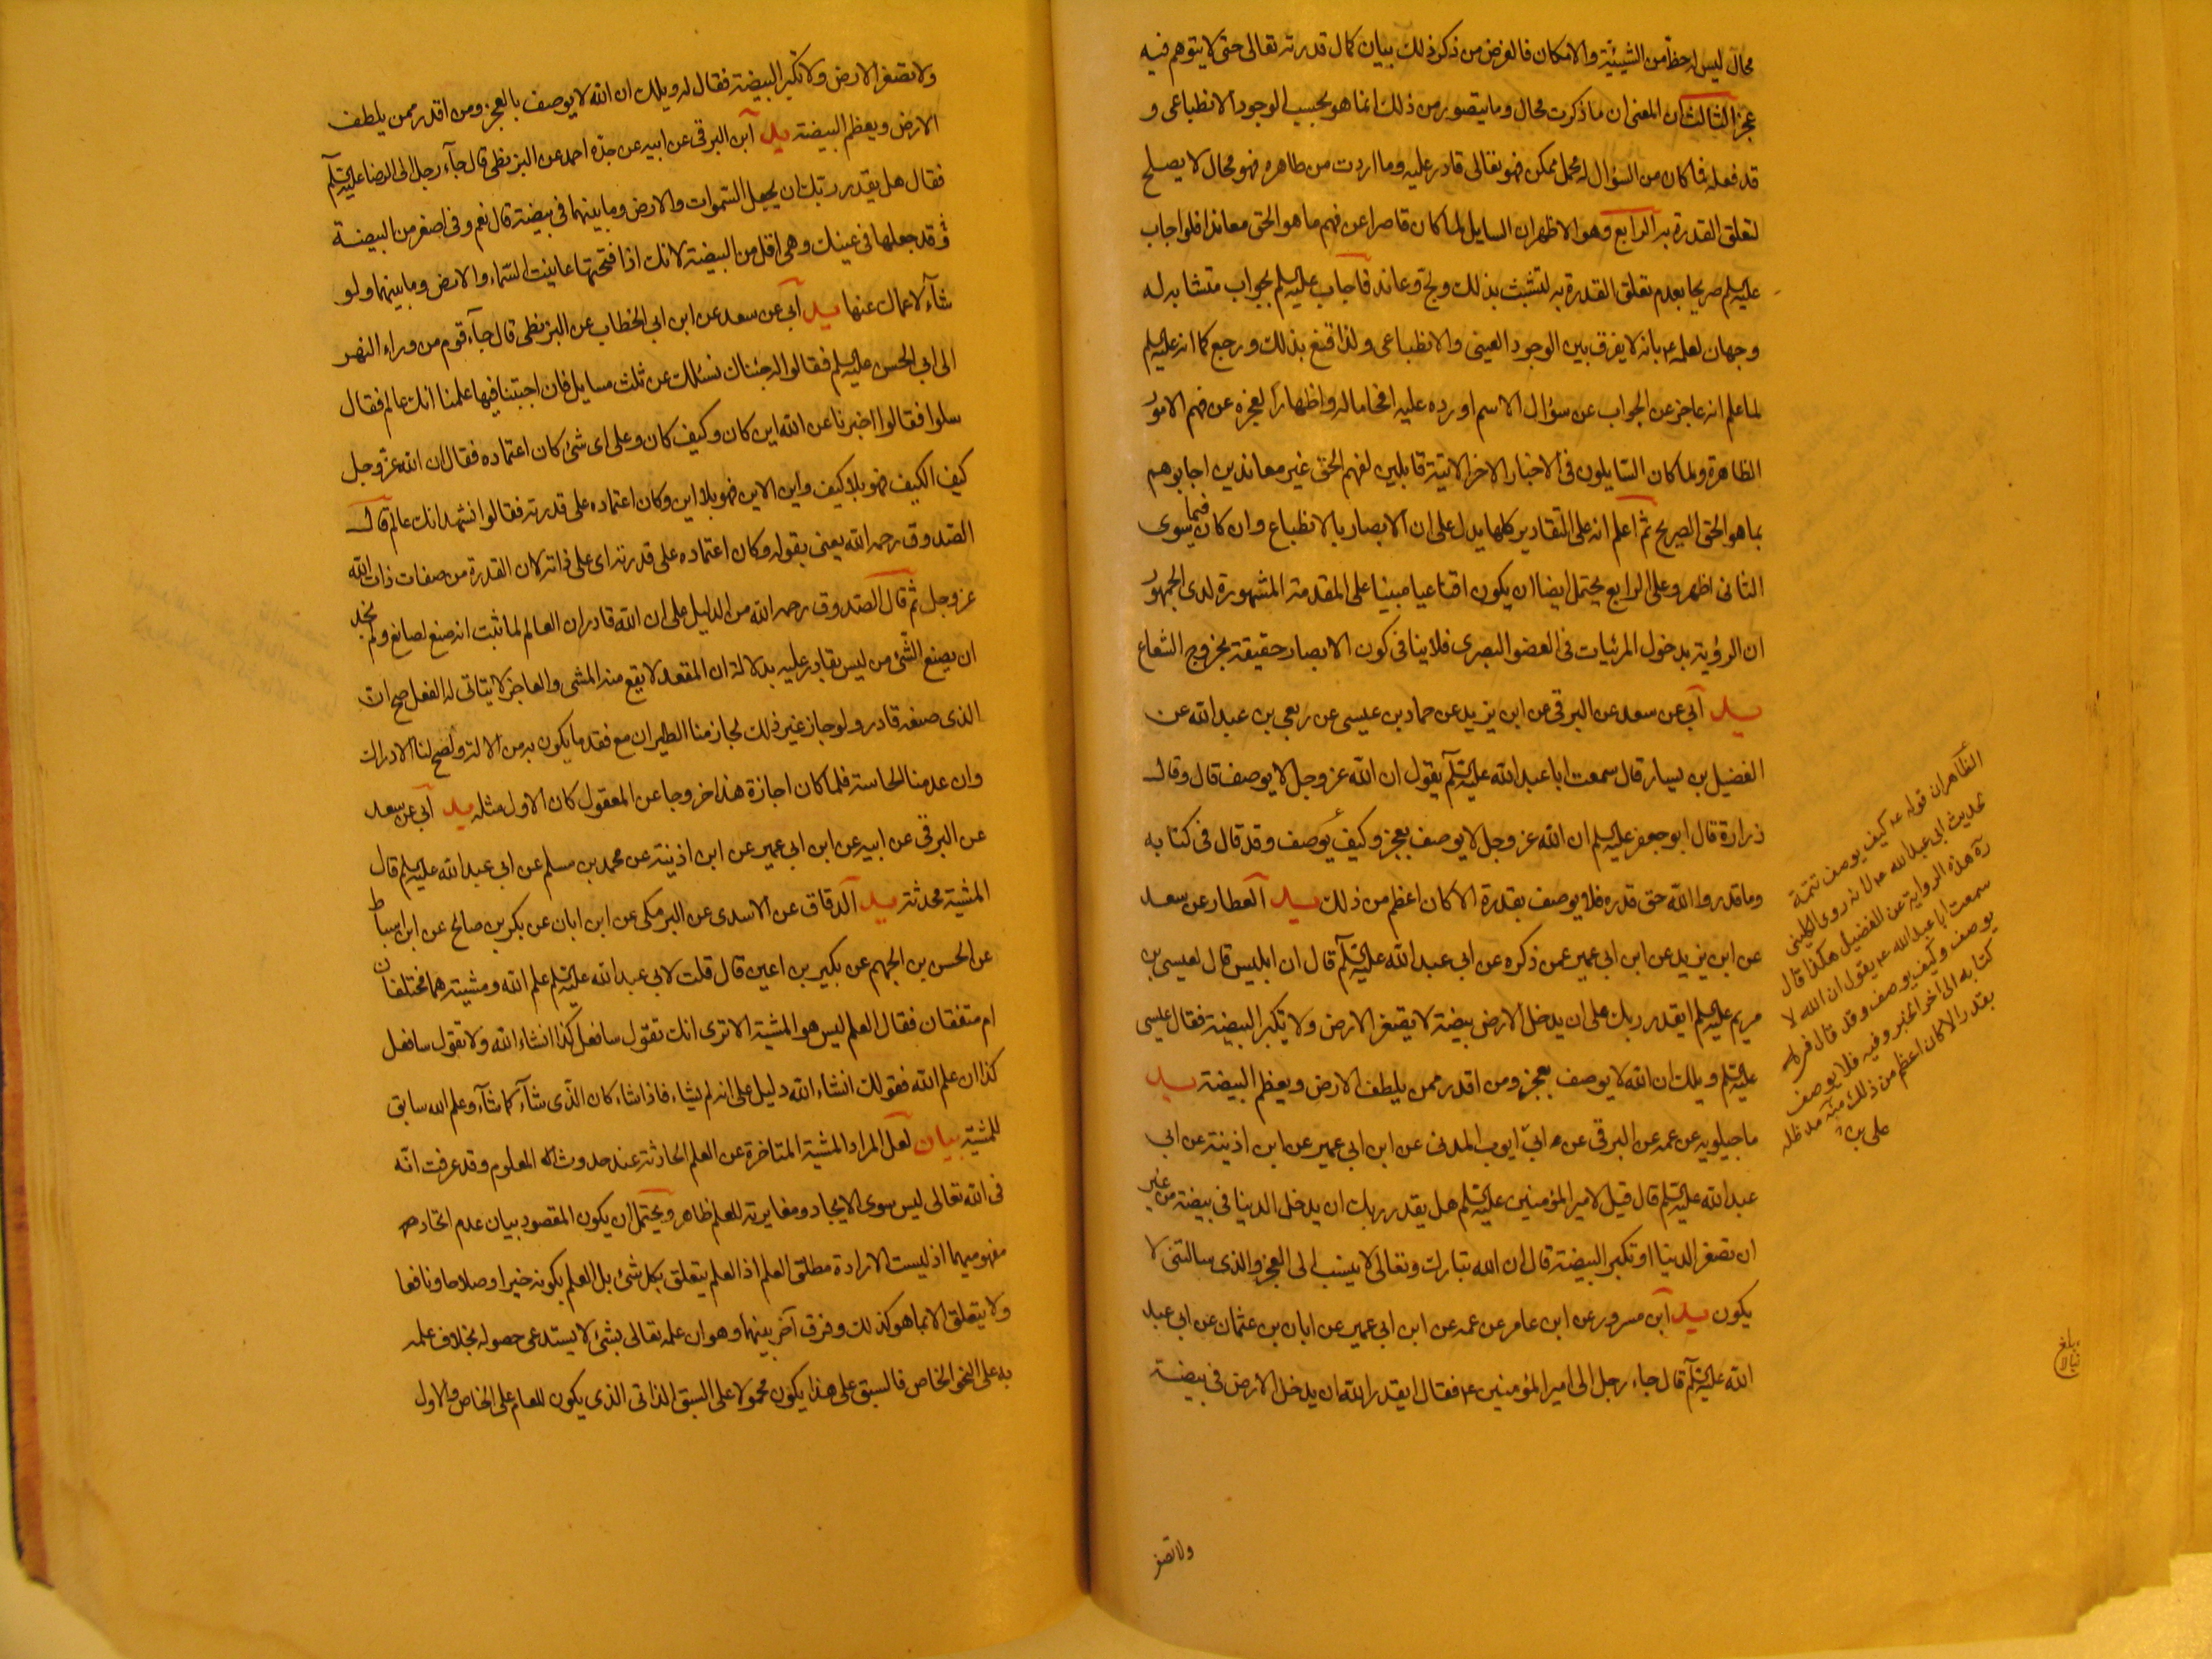 محال ليس له حظ من الشيئية والامكان فالغرض من ذكر ذلك بيان كمال قدرته تعالى حتى لا يتوهم فيه
عجز الثالث ان المعنى ان ما ذكرت محال وما يتصور من ذلك انما هو بحسب الوجود الانطباعى و
قد فعله فما كان من السؤال له محمل ممكن فهو تعالى قادر عليه وما اردت من ظاهره فهو محال لا يصلح
لتعلق القدرة به الرابع وهو الاظهر ان السايل لما كان قاصرا عن فهم ما هو الحق معاندا فلو اجاب
عليه السلم صريحا بعدم تعلق القدرة به لتشبث بذلك ولج وعاند فاجاب عليه السلم بجواب متشابه له
وجهان لعلمه ع بانه لا يفرق بين الوجود العينى والانطباعى ولذا قنع بذلك ورجع كما انه عليه السلم
لما علم انه عاجز عن الجواب عن سؤال الاسم اورده عليه افحاما له واظهارا لعجزه عن فهم الامور
الظاهرة ولما كان السايلون فى الاخبار الاخر الاتية قابلين لفهم الحق غير معاندين اجابوهم
بما هو الحق الصريح ثم اعلم انه على التقادير كلها يدل على ان الابصار بالانطباع وان كان فيما سوى
الثانى اظهر وعلى الرابع يحتمل ايضا ان يكون اقناعيا مبنيا على المقدمة المشهورة لدى الجمهور
ان الرؤية بدخول المرئيات فى العضو البصرى فلا ينافى كون الابصار حقيقة بخروج الشعاع
يد ابى عن سعد عن البرقى عن ابن يزيد عن حماد بن عيسى عن ربعى بن عبد الله عن
الفضيل بن يسار قال سمعت ابا عبد الله عليه السلم يقول ان الله عز وجل لا يوصف قال وقال
زرارة قال ابو جعفر عليه السلم ان الله عز وجل لا يوصف بعجز وكيف يوصف وقد قال فى كتابه
وما قدروا الله حق قدره فلا يوصف بقدرة الا كان اعظم من ذلك يد العطار عن سعد
عن ابن يزيد عن ابن ابى عمير عمن ذكره عن ابى عبد الله عليه السلم قال ان ابليس قال لعيسى بن
مريم عليه السلم ايقدر ربك على ان يدخل الارض بيضة لا يصغر الارض ولا يكبر البيضة فقال عيسى
عليه السلم ويلك ان الله لا يوصف بعجز ومن اقدر ممن يلطف الارض ويعظم البيضة يد
ماجيلويه عن عمه عن البرقى عن ابى ايوب المدنى عن ابن ابى عمير عن ابن اذينة عن ابى
عبد الله عليه السلم قال قيل لامير المؤمنين عليه السلم هل يقدر ربك ان يدخل الدنيا فى بيضة من غير
ان تصغر الدنيا او تكبر البيضة قال ان الله تبارك وتعالى لا ينسب الى العجز والذى سالتنى لا
يكون يد ابن مسرور عن ابن عامر عن عمه عن ابن ابى عمير عن ابان بن عثمان عن ابى عبد
الله عليه السلم قال جاء رجل الى امير المؤمنين ع فقال ايقدر الله ان يدخل الارض فى بيضة
ولا تصغر
الظاهر ان قوله ع كيف يوصف تتمة
لحديث ابى عبد الله ع لانه روى الكلينى
ره هذه الرواية عن الفضيل هكذا قال
سمعت ابا عبد الله ع يقول ان الله لا
يوصف وكيف يوصف وقد قال فى
كتابه الى اخر الخبر وفيه فلا يوصف
بقدر الا كان اعظم من ذلك منه مد ظله
بلغ
ولا تصغر الارض ولا تكبر البيضة فقال له ويلك ان الله لا يوصف بالعجز ومن اقدر ممن يلطف
الارض ويعظم البيضة يد ابن البرقى عن ابيه عن جده احمد عن البزنطى قال جاء رجل الى الرضا عليه السلم
فقال هل يقدر ربك ان يجعل السموات والارض وما بينهما فى بيضة قال نعم وفى اصغر من البيضة
وقد جعلها فى عينك وهى اقل من البيضة لانك اذا فتحتها عاينت السماء والارض وما بينهما ولو
شاء لاعماك عنها يد ابى عن سعد عن ابن ابى الخطاب عن البزنطى قال جاء قوم من وراء النهر
الى ابى الحسن عليه السلم فقالوا له جئناك نسئلك عن ثلث مسايل فان اجبتنا فيها علمنا انك عالم فقال
سلوا فقالوا اخبرنا عن الله اين كان وكيف كان وعلى اى شئ كان اعتماده فقال ان الله عز وجل
كيف الكيف فهو بلا كيف واين الاين فهو بلا اين وكان اعتماده على قدرته فقالوا نشهد انك عالم قال
الصدوق رحمه الله يعنى بقوله وكان اعتماده على قدرته اى على ذاته لان القدرة من صفات ذات الله
عز وجل ثم قال الصدوق رحمه الله من الدليل على ان الله قادر ان العالم لما ثبت انه صنع لصانع ولم نجد
ان يصنع الشئ من ليس بقادر عليه بدلالة ان المقعد لا يقع منه المشى والعاجز لا يتاتى له الفعل صح ان
الذى صنعه قادر ولو جاز غير ذلك لجاز منا الطيران مع فقد ما يكون به من الالة ولصح لنا الادراك
وان عدمنا الحاسة فلما كان اجازة هذا خروجا عن المعقول كان الاول مثله يد ابى عن سعد
عن البرقى عن ابيه عن ابن ابى عمير عن ابن اذينة عن محمد بن مسلم عن ابى عبد الله عليه السلم قال
المشية محدثة يد الدقاق عن الاسدى عن البرمكى عن ابن ابان عن بكر بن صالح عن ابن اسباط
عن الحسن بن الجهم عن بكير بن اعين قال قلت لابى عبد الله عليه السلم علم الله ومشيته هما مختلفان
ام متفقان فقال العلم ليس هو المشية الا ترى انك تقول سافعل كذا انشاء الله ولا تقول سافعل
كذا ان علم الله فقولك انشاء الله دليل على انه لم يشاء فاذا شاء كان الذى شاء كما شاء وعلم الله سابق
للمشية بيان لعل المراد المشية المتاخرة عن العلم الحادثة عند حدوث المعلوم وقد عرفت انه
فى الله تعالى ليس سوى الايجاد ومغايرته للعلم ظاهر ويحتمل ان يكون المقصود بيان عدم اتحاد
مفهوميهما اذ ليست الارادة مطلق العلم اذ العلم يتعلق بكل شئ بل العلم بكونه خيرا وصلاحا ونافعا
ولا يتعلق الا بما هو كذلك وفرق آخر بينهما وهو ان علمه تعالى بشئ لا يستدعى حصوله بخلاف علمه
به على النحو الخاص فالسبق على هذا يكون محمولا على السبق الذاتى الذى يكون للعام على الخاص والاول